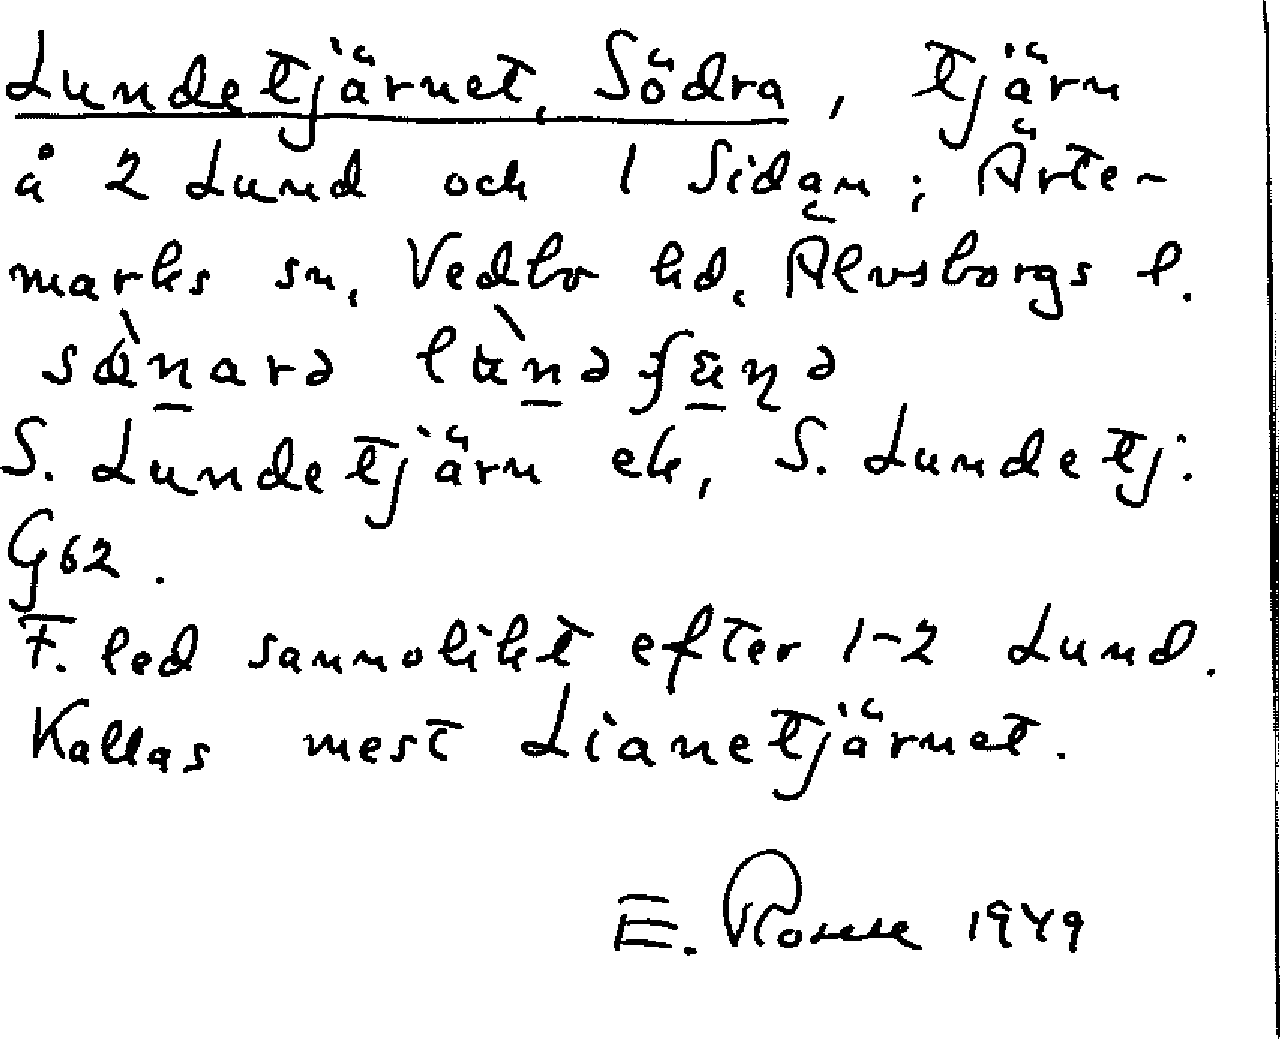 Lundetjärnet, Södra, tjärn
å 2 Lund och 1 Sidan; Ärte-
marks sn, Vedbo hd, Älvsborgs l.
S. Lundetjärn ek, S. Lundetj:
G62.
F. led sannolikt efter 1-2 Lund.
Kallas mest Lianetjärnet.
E. 1949